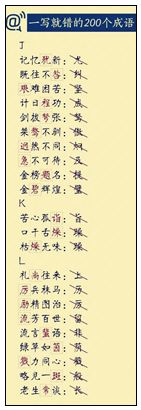 一写就错的200个成语
J
记忆犹新：尤
既往不咎：纠
艰难困苦：坚
计日程功：成
剑拔弩张：驽
桀骜不驯：傲
迥然不同：炯
急不可待：及
金榜题名：提
金碧辉煌：壁
K
苦心孤诣：旨
口干舌燥：躁
枯燥无味：躁
L
礼尚往来：上
厉兵秣马：历
励精图治：厉
流芳百世：留
流言蜚语：非
绿草如茵：荫
戮力同心：戳
略见一斑：般
老生常谈：长